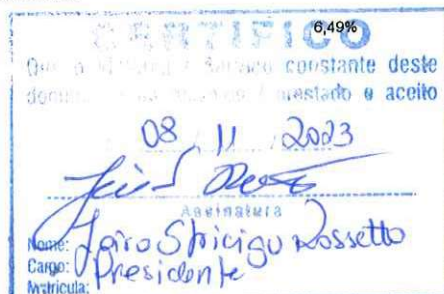 CERTIFICO
6,49%
Que o constante deste
documento foi prestado e aceito
08 11 2023
Assinatura
Nome: Jairo Rossetto
Cargo: Presidente
Matrícula: